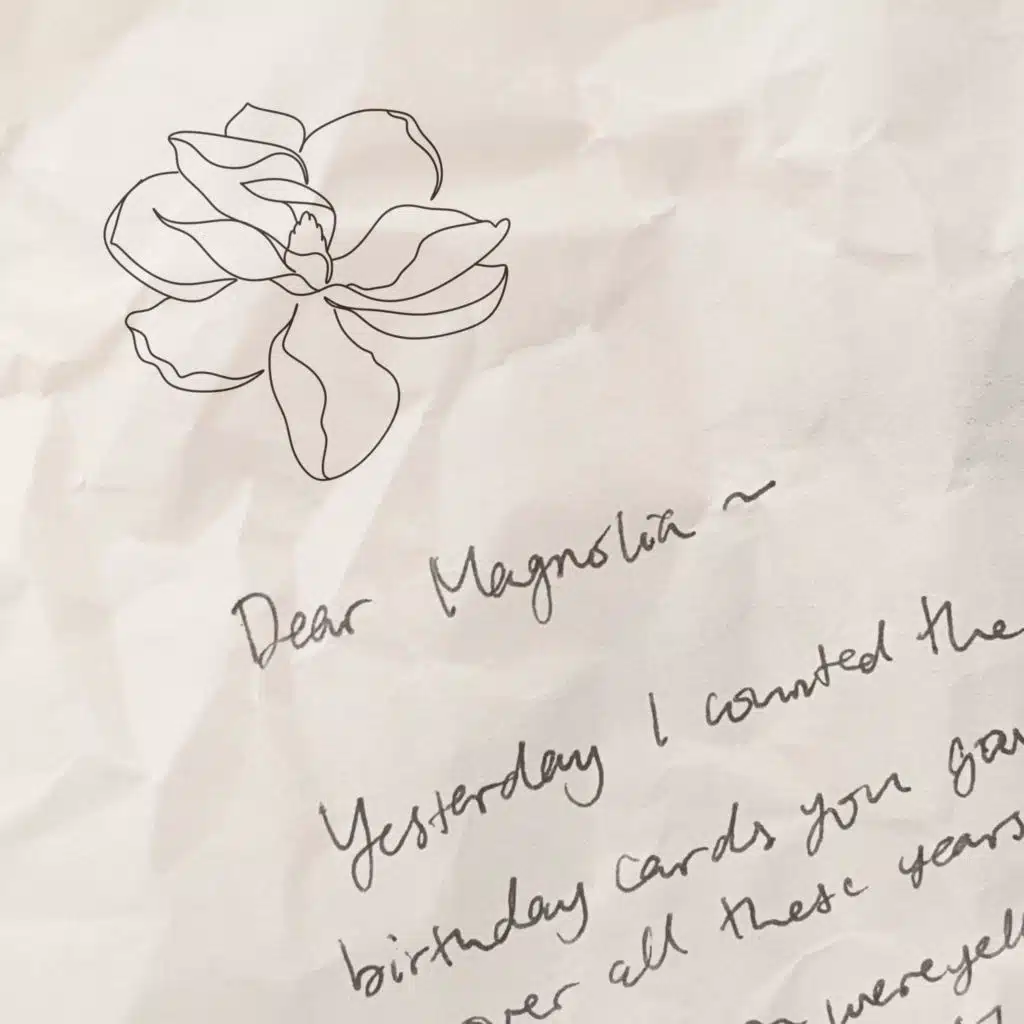 Dear Magnolia ~
Yesterday I counted the
birthday cards you
over all these years